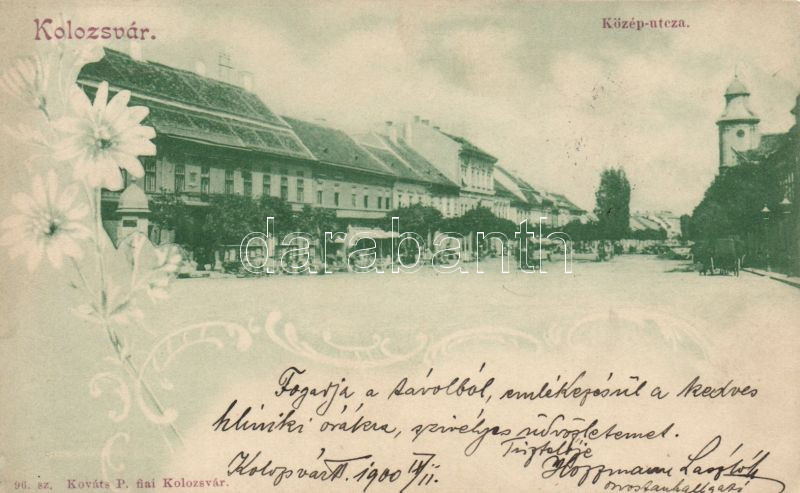 Kolozsvár.
Közép-utcza.
darabanth
Fogadja a távolból, emlékezésül a kedves
kliniki órákra, szivélyes üdvözletemet.
Tisztelője
Kolozsvárt 1900 II/11.
Hoffmann László
orvostanhallgató
96. sz. Kováts P. fiai Kolozsvár.